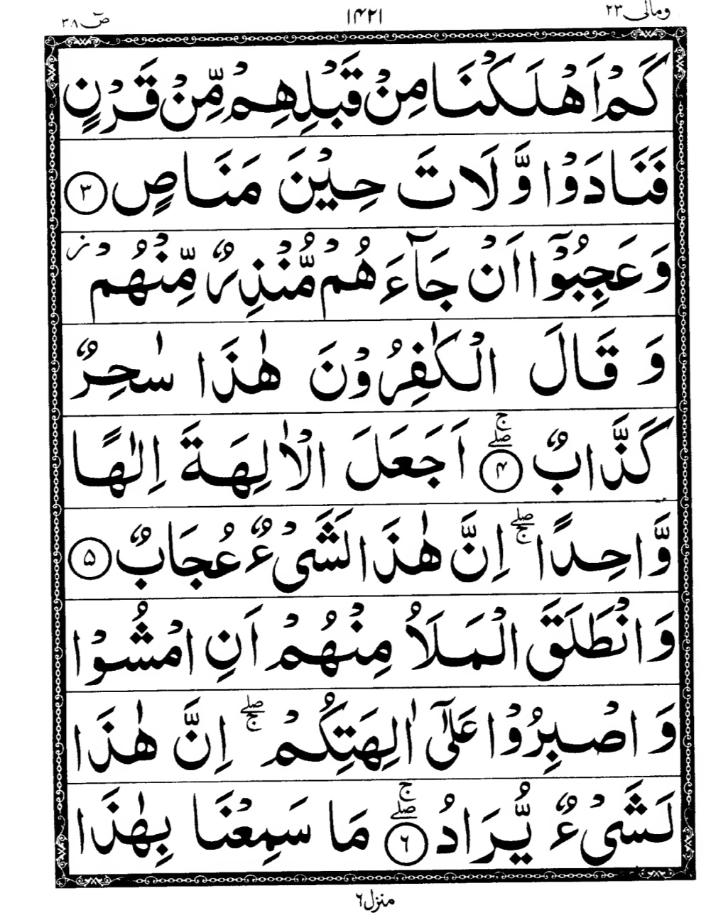 ومالی ۲۳ ۱۴۲۱ صٓ ۳۸
كَمْ اَهْلَكْنَا مِنْ قَبْلِهِمْ مِّنْ قَرْنٍ
فَنَادَوْا وَّلَاتَ حِيْنَ مَنَاصٍ ۳
وَعَجِبُوْۤا اَنْ جَآءَهُمْ مُّنْذِرٌ مِّنْهُمْ ز
وَقَالَ الْكٰفِرُوْنَ هٰذَا سٰحِرٌ
كَذَّابٌ ۴ ۖۚ اَجَعَلَ الْاٰلِهَةَ اِلٰهًا
وَّاحِدًا ۖۚ اِنَّ هٰذَا لَشَيْءٌ عُجَابٌ ۵
وَانْطَلَقَ الْمَلَاُ مِنْهُمْ اَنِ امْشُوْا
وَاصْبِرُوْا عَلٰۤى اٰلِهَتِكُمْ ۖۚ اِنَّ هٰذَا
لَشَيْءٌ يُّرَادُ ۶ ۖۚ مَا سَمِعْنَا بِهٰذَا
منزل ۶